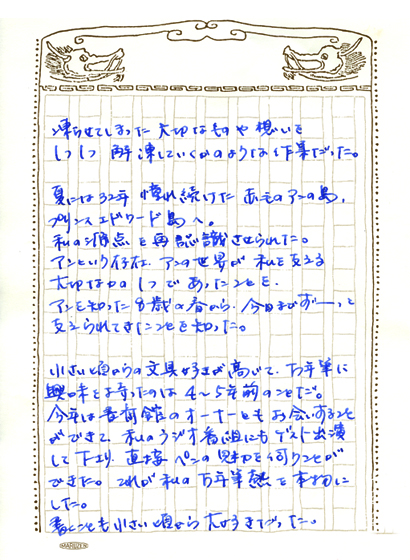 凍らせてしまった 大切なものや想いを
1つ1つ 解凍していくかのような作業だった。
夏には32年 憧れ続けた 赤毛のアンの島、
プリンスエドワード島へ。
私の原点を再認識させられた。
アンという存在、アンの世界が 私を支える
大切なカの1つであったことを。
アンを知った8歳の春から、今日までずーっと
支えられてきたことを知った。
小さい頃からの文具好きが高じて、万年筆に
興味を持ったのは 4〜5年前のことだ。
今年は 館のオーナーともお会いすること
ができて、私のラジオ番組にもゲスト出演
して下さり、直接ペンの魅力を伺うことが
できた。これが私の万年筆熱を本物に
した。
書くことも小さい頃から大好きだった。